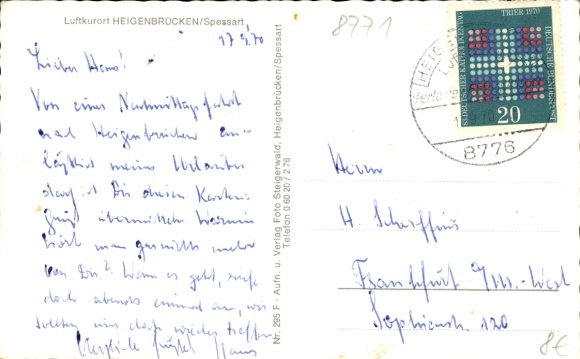 Luftkurort HEIGENBRÜCKEN/Spessart
8771
17.9.70
Lieber Hans!
Von einer Nachmittagsfahrt
nach Heigenbrücken an-
läßlich meines Urlaubes
darf ich Dir diesen Karten-
gruß übermitteln. Warum
hört man gar nichts mehr
von Dir? Wenn es geht, rufe
doch abends einmal an, wir
sollten uns doch wieder treffen
Herzliche Grüße Hans
Nr. 295 F - Aufn. u. Verlag Foto Steigerwald, Heigenbrücken/Spessart
Telefon 0 60 20 / 2 76
81. DEUTSCHER KATHOLIKENTAG TRIER 1970
DEUTSCHE BUNDESPOST
20
8776
Herrn
H. Scheffius
Frankfurt a/M.-West
Sophienstr. 120
8€